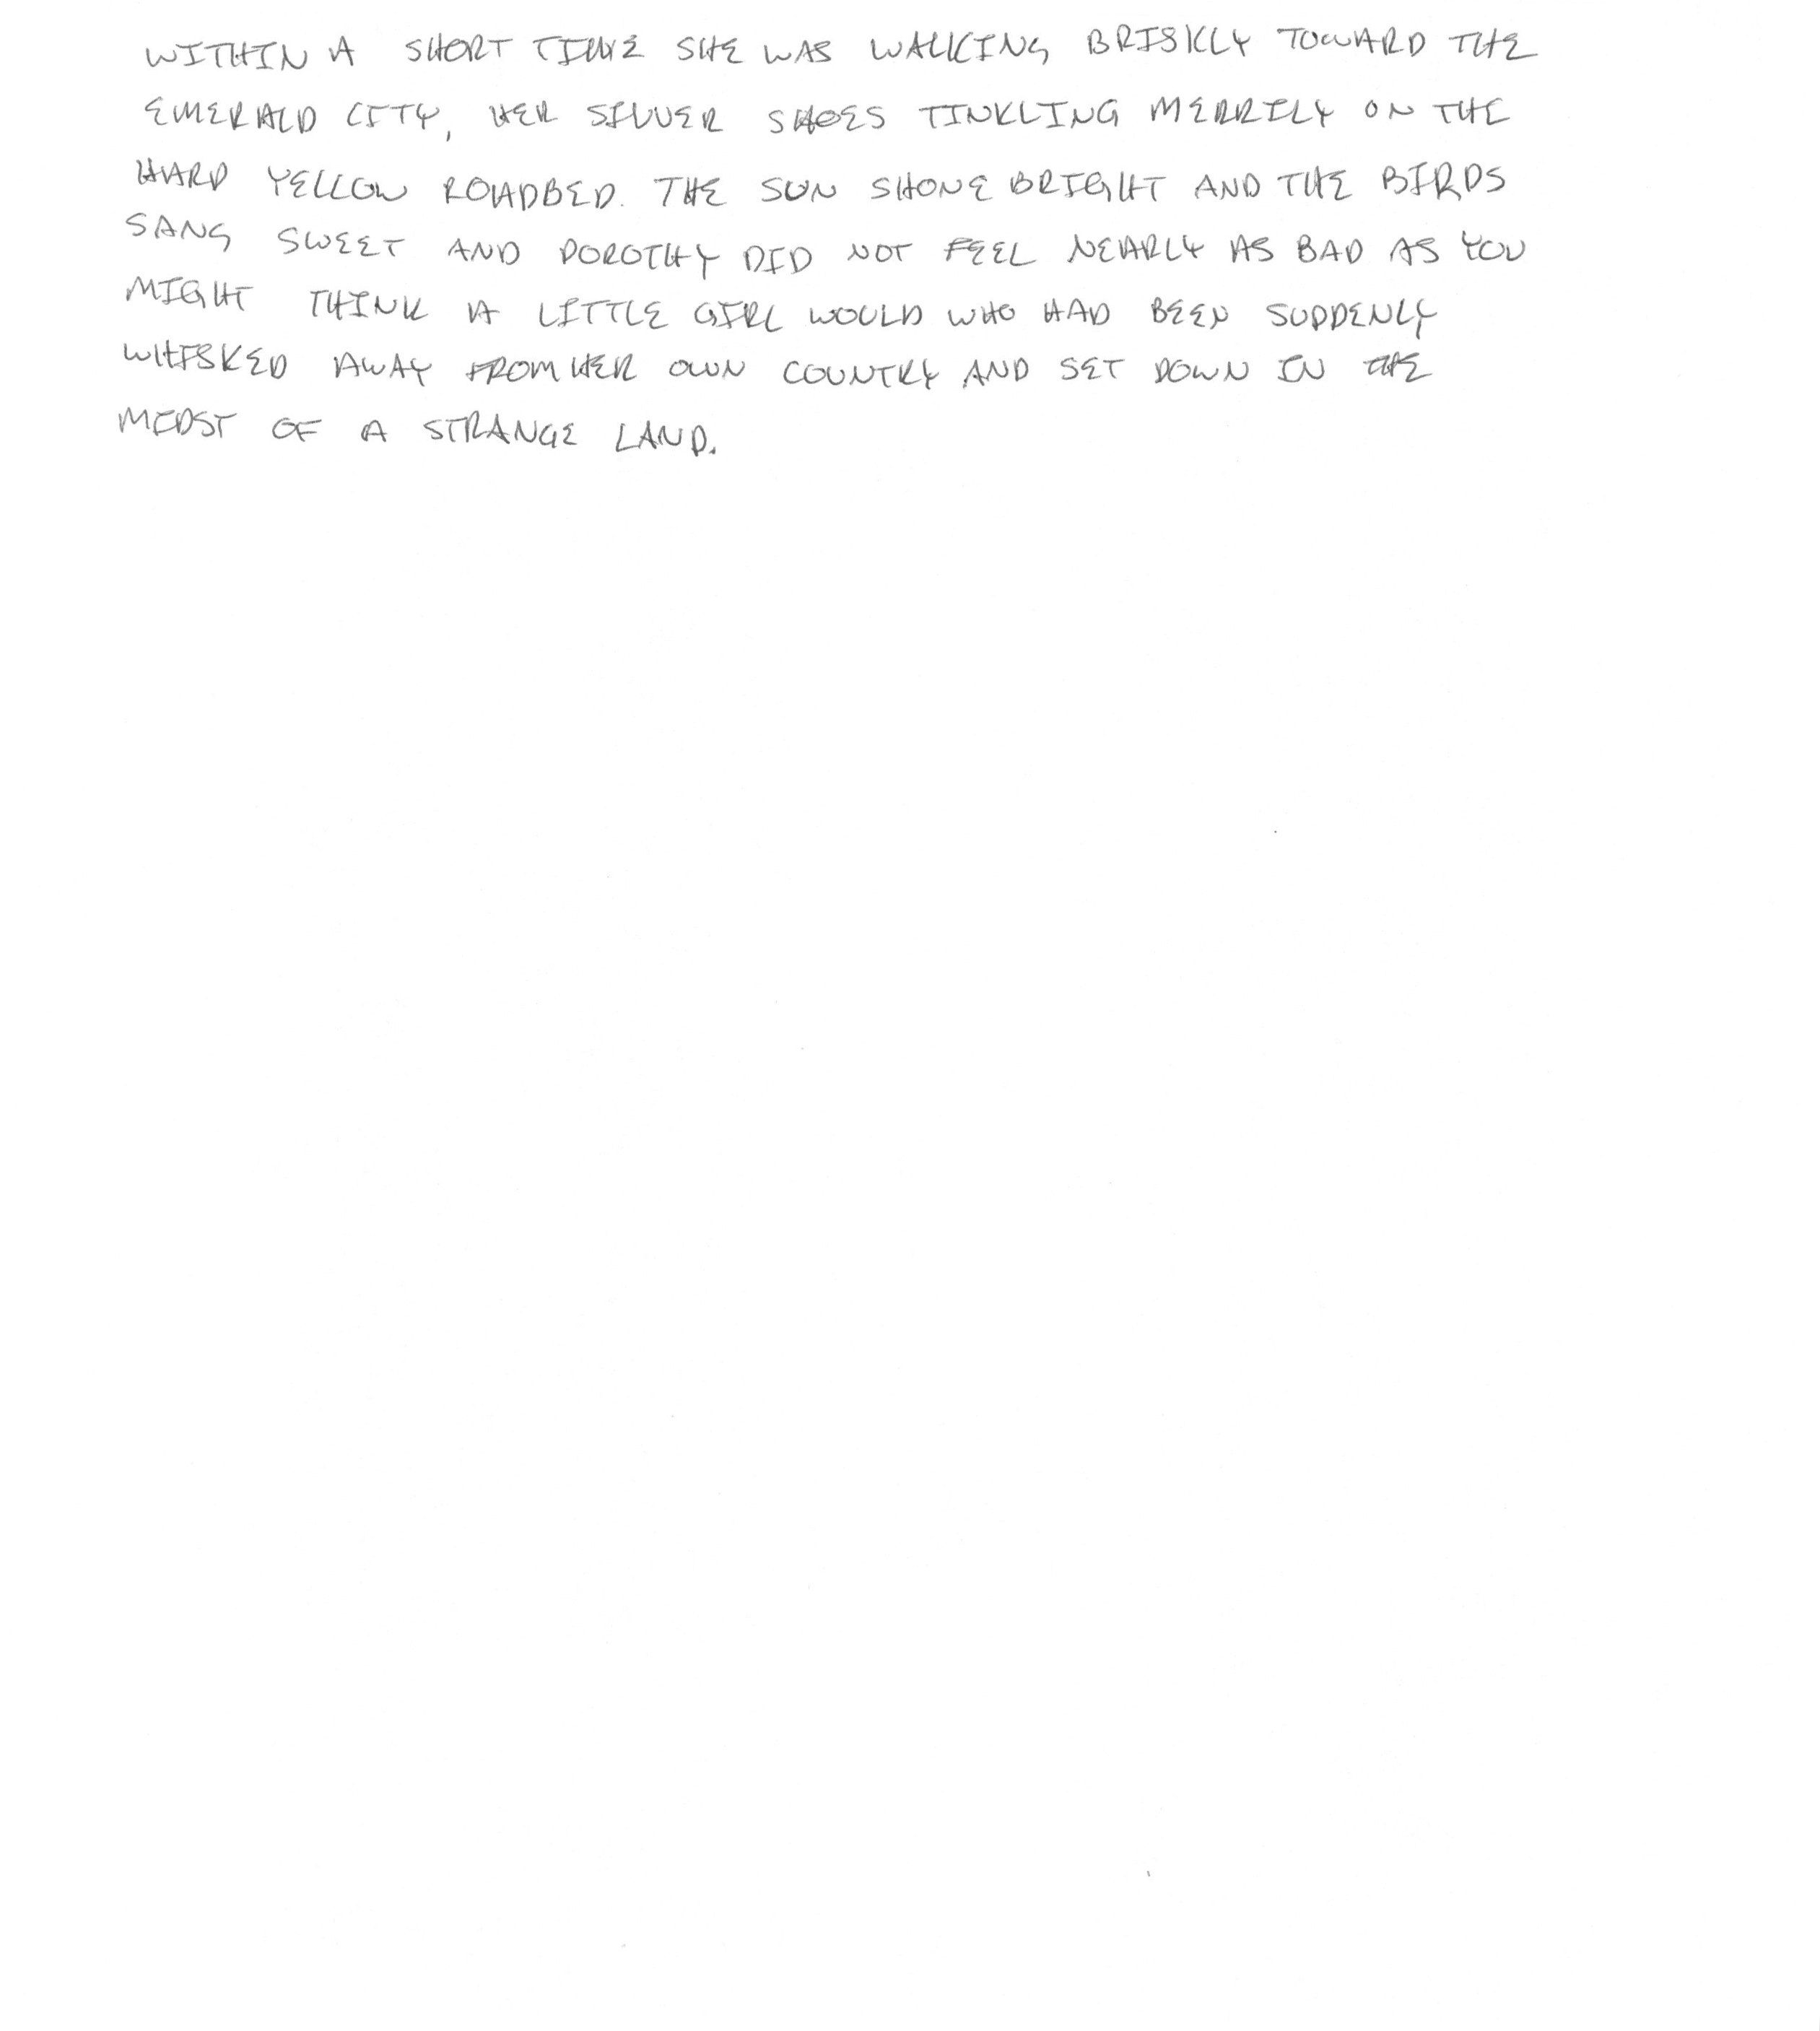 WITHIN A SHORT TIME SHE WAS WALKING BRISKLY TOWARD THE
EMERALD CITY, HER SILVER SHOES TINKLING MERRILY ON THE
HARD YELLOW ROADBED. THE SUN SHONE BRIGHT AND THE BIRDS
SANG SWEET AND DOROTHY DID NOT FEEL NEARLY AS BAD AS YOU
MIGHT THINK A LITTLE GIRL WOULD WHO HAD BEEN SUDDENLY
WHISKED AWAY FROM HER OWN COUNTRY AND SET DOWN IN THE
MIDST OF A STRANGE LAND.